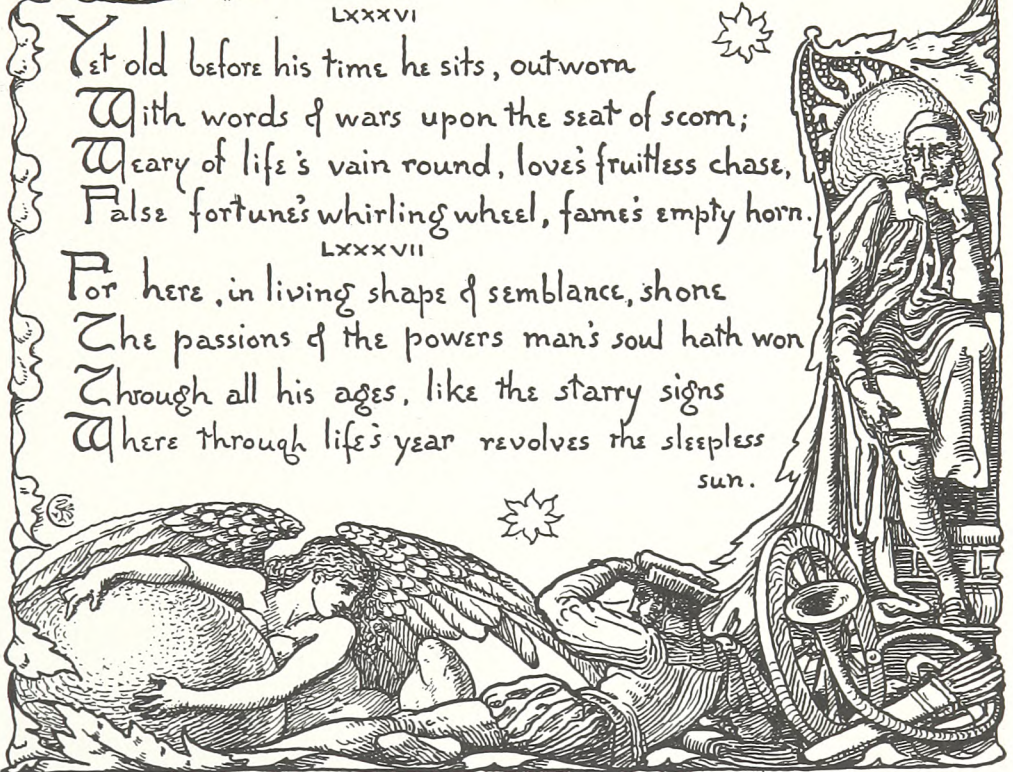 LXXXVI
Yet old before his time he sits, outworn
With words of wars upon the seat of scorn;
Weary of life's vain round, love's fruitless chase,
False fortune's whirling wheel, fame's empty horn.
LXXXVII
For here, in living shape of semblance, shone
The passions of the powers man's soul hath won
Through all his ages, like the starry signs
Where through life's year revolves the sleepless
sun.